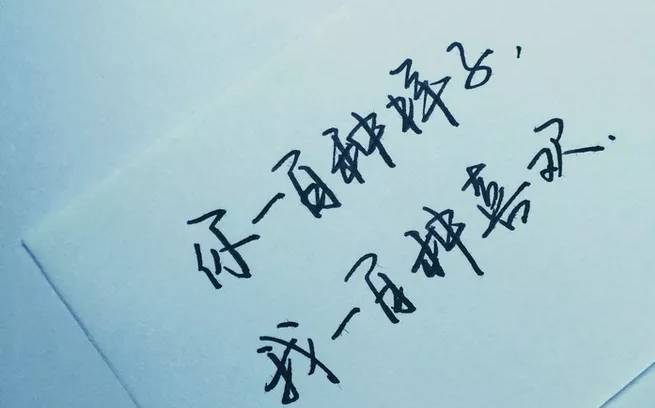 你一百种样子.
我一百种喜欢.